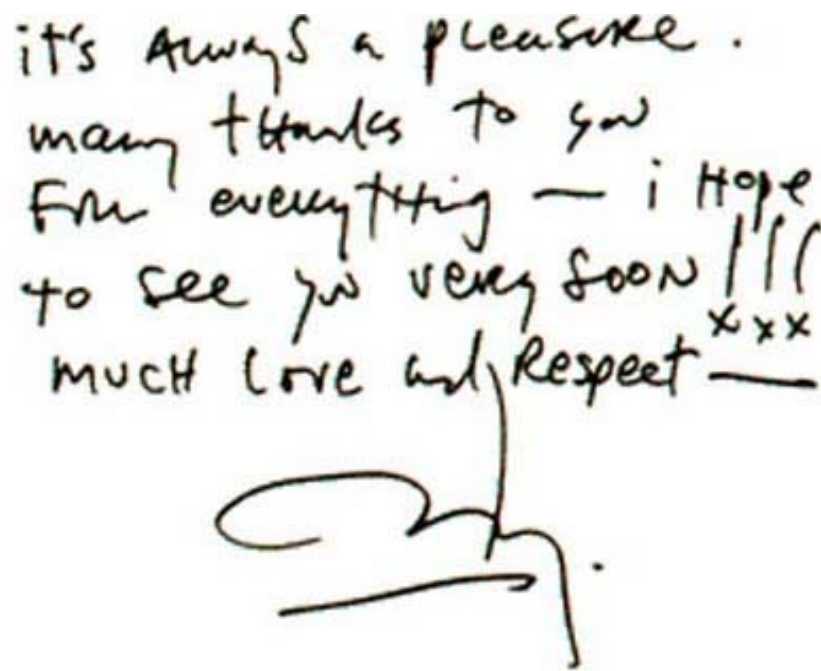 it's Always a pleasure.
many thanks to you
For everything — i Hope
to see you very soon !!!
xxx
much Love and Respect —